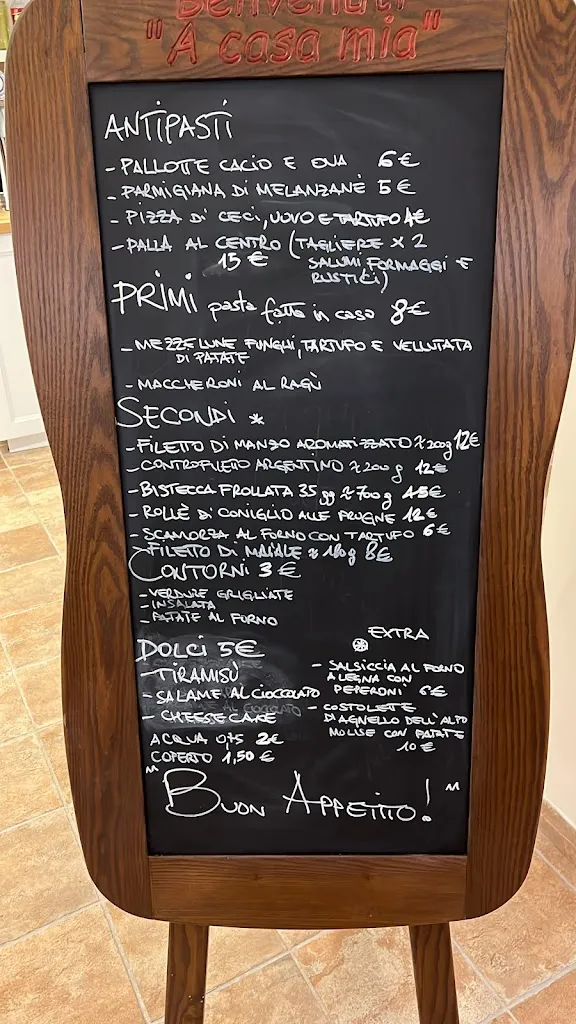 Benvenuti
"A casa mia"
ANTIPASTI
- PALLOTTE CACIO E OVA 6€
- PARMIGIANA DI MELANZANE 5€
- PIZZA DI CECI, UOVO E TARTUFO 4€
- PALLA AL CENTRO (TAGLIERE X 2
15 € SALUMI FORMAGGI E
RUSTICI)
PRIMI pasta fatta in casa 8€
- MEZZE LUNE FUNGHI, TARTUFO E VELLUTATA
DI PATATE
- MACCHERONI AL RAGÙ
SECONDI *
- FILETTO DI MANZO AROMATIZZATO ≈ 200g 12€
- CONTROFILETTO ARGENTINO ≈ 200 g 12€
- BISTECCA FROLLATA 35 gg ≈ 700g 15€
- ROLLÈ DI CONIGLIO ALLE PRUGNE 12€
- SCAMORZA AL FORNO CON TARTUFO 6€
- FILETTO DI MAIALE ≈ 180g 8€
CONTORNI 3€
- VERDURE GRIGLIATE
- INSALATA
- PATATE AL FORNO
DOLCI 5€
- TIRAMISÙ
- SALAME AL CIOCCOLATO
- CHEESECAKE
ACQUA 0,75 2€
COPERTO 1,50 €
EXTRA
*
- SALSICCIA AL FORNO
A LEGNA CON
PEPERONI 6€
- COSTOLETTE
DI AGNELLO DELL'ALTO
MOLISE CON PATATE
10 €
"BUON APPETITO!"